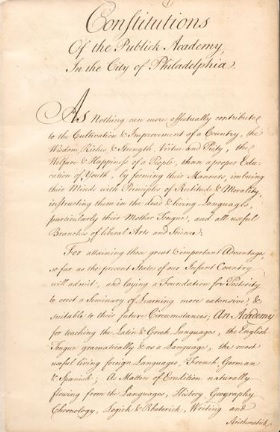 Constitutions
Of the Publick Academy,
In the City of Philadelphia
As Nothing can more effectually contribute
to the Cultivation & Improvement of a Country, the
Wisdom, Riches & Strength, Virtue and Piety, the
Welfare & Happiness of a People, than a proper Edu-
cation of Youth, by forming their Manners, imbuing
their Minds with Principles of Rectitude & Morality,
instructing them in the dead & living Languages,
particularly their Mother Tongue, and all useful
Branches of liberal Arts and Science;
For attaining these great & important Advantages,
so far as the present State of our Infant Country
will admit, and laying a Foundation for Posterity
to erect a Seminary of Learning more extensive, &
suitable to their future Circumstances, An Academy
for teaching the Latin & Greek Languages, the English
Tongue gramatically & as a Language, the most
useful living foreign Languages, French, German
& Spanish; As Matters of Erudition naturally
flowing from the Languages, History, Geography
Chronology, Logick & Rhetorick, Writing and
Arithmetick